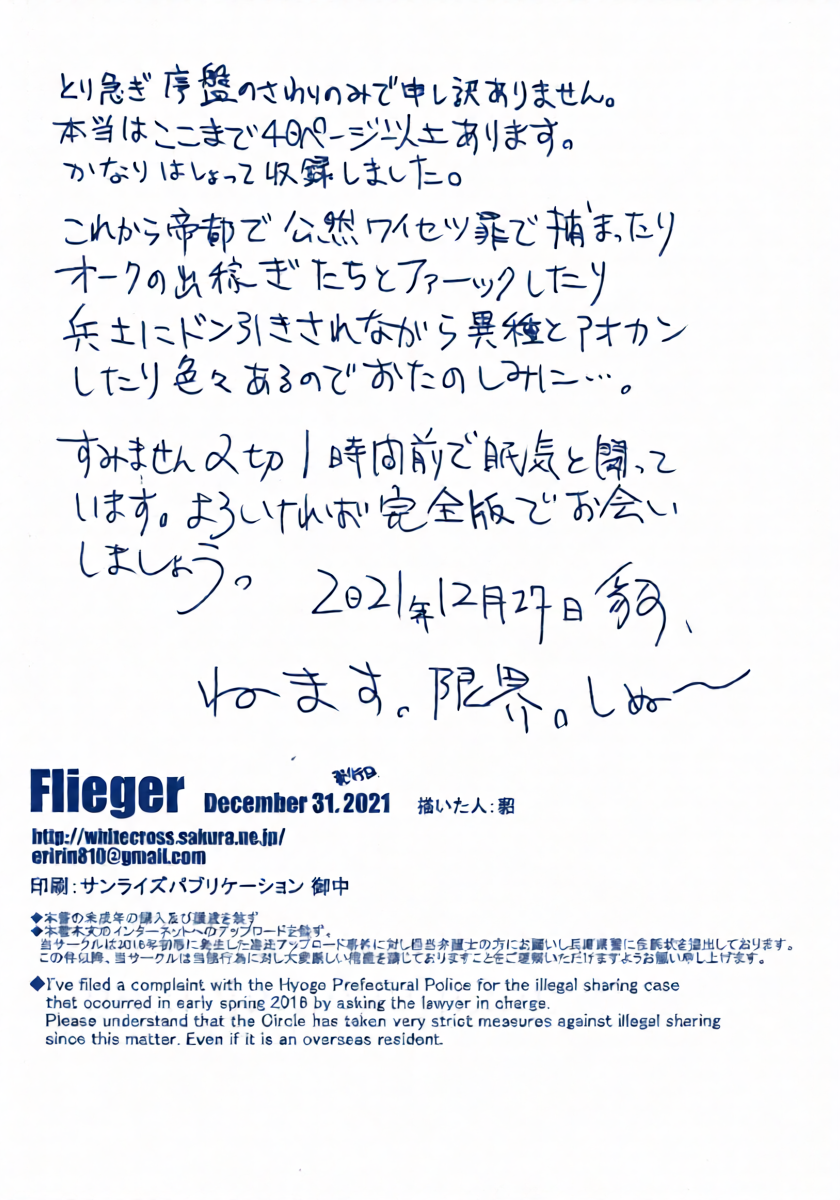 とり急ぎ序盤のさわりのみで申し訳ありません。
本当はここまで40ページ以上あります。
かなりはしょって収録しました。
これから帝都で公然ワイセツ罪で捕まったり
オークの出稼ぎたちとファーックしたり
兵士にドン引きされながら異種とアオカン
したり色々あるのでおたのしみに…。
すみません〆切1時間前で眠気と闘って
います。よろしければ完全版でお会い
しましょう。
2021年12月27日 貂、
ねます。限界。しぬ〜
Flieger 発行日 December 31.2021 描いた人:貂
http://whitecross.sakura.ne.jp/
eririn810@gmail.com
印刷:サンライズパブリケーション 御中
◆本書の未成年の購入及び譲渡を禁ず
◆本書本文のインターネットへのアップロードを禁ず。
当サークルは2016年初春に発生した違法アップロード事件に対し担当弁護士の方にお願いし兵庫県警に告訴状を提出しております。
この件以降、当サークルは当該行為に対し大変厳しい措置を講じておりますことをご理解いただけますようお願い申し上げます。
◆I've filed a complaint with the Hyogo Prefectural Police for the illegal sharing case
that ocurred in early spring 2016 by asking the lawyer in charge.
Please understand that the Circle has taken very strict measures against illegal sharing
since this matter. Even if it is an overseas resident.